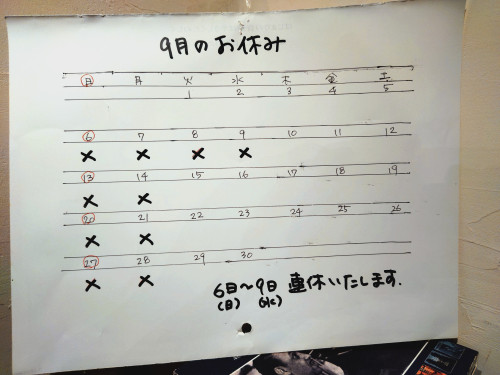 9月のお休み
日 月 火 水 木 金 土
1 2 3 4 5
6 7 8 9 10 11 12
× × × ×
13 14 15 16 17 18 19
× ×
20 21 22 23 24 25 26
× ×
27 28 29 30
× ×
6日〜9日 連休いたします.
(日) (水)